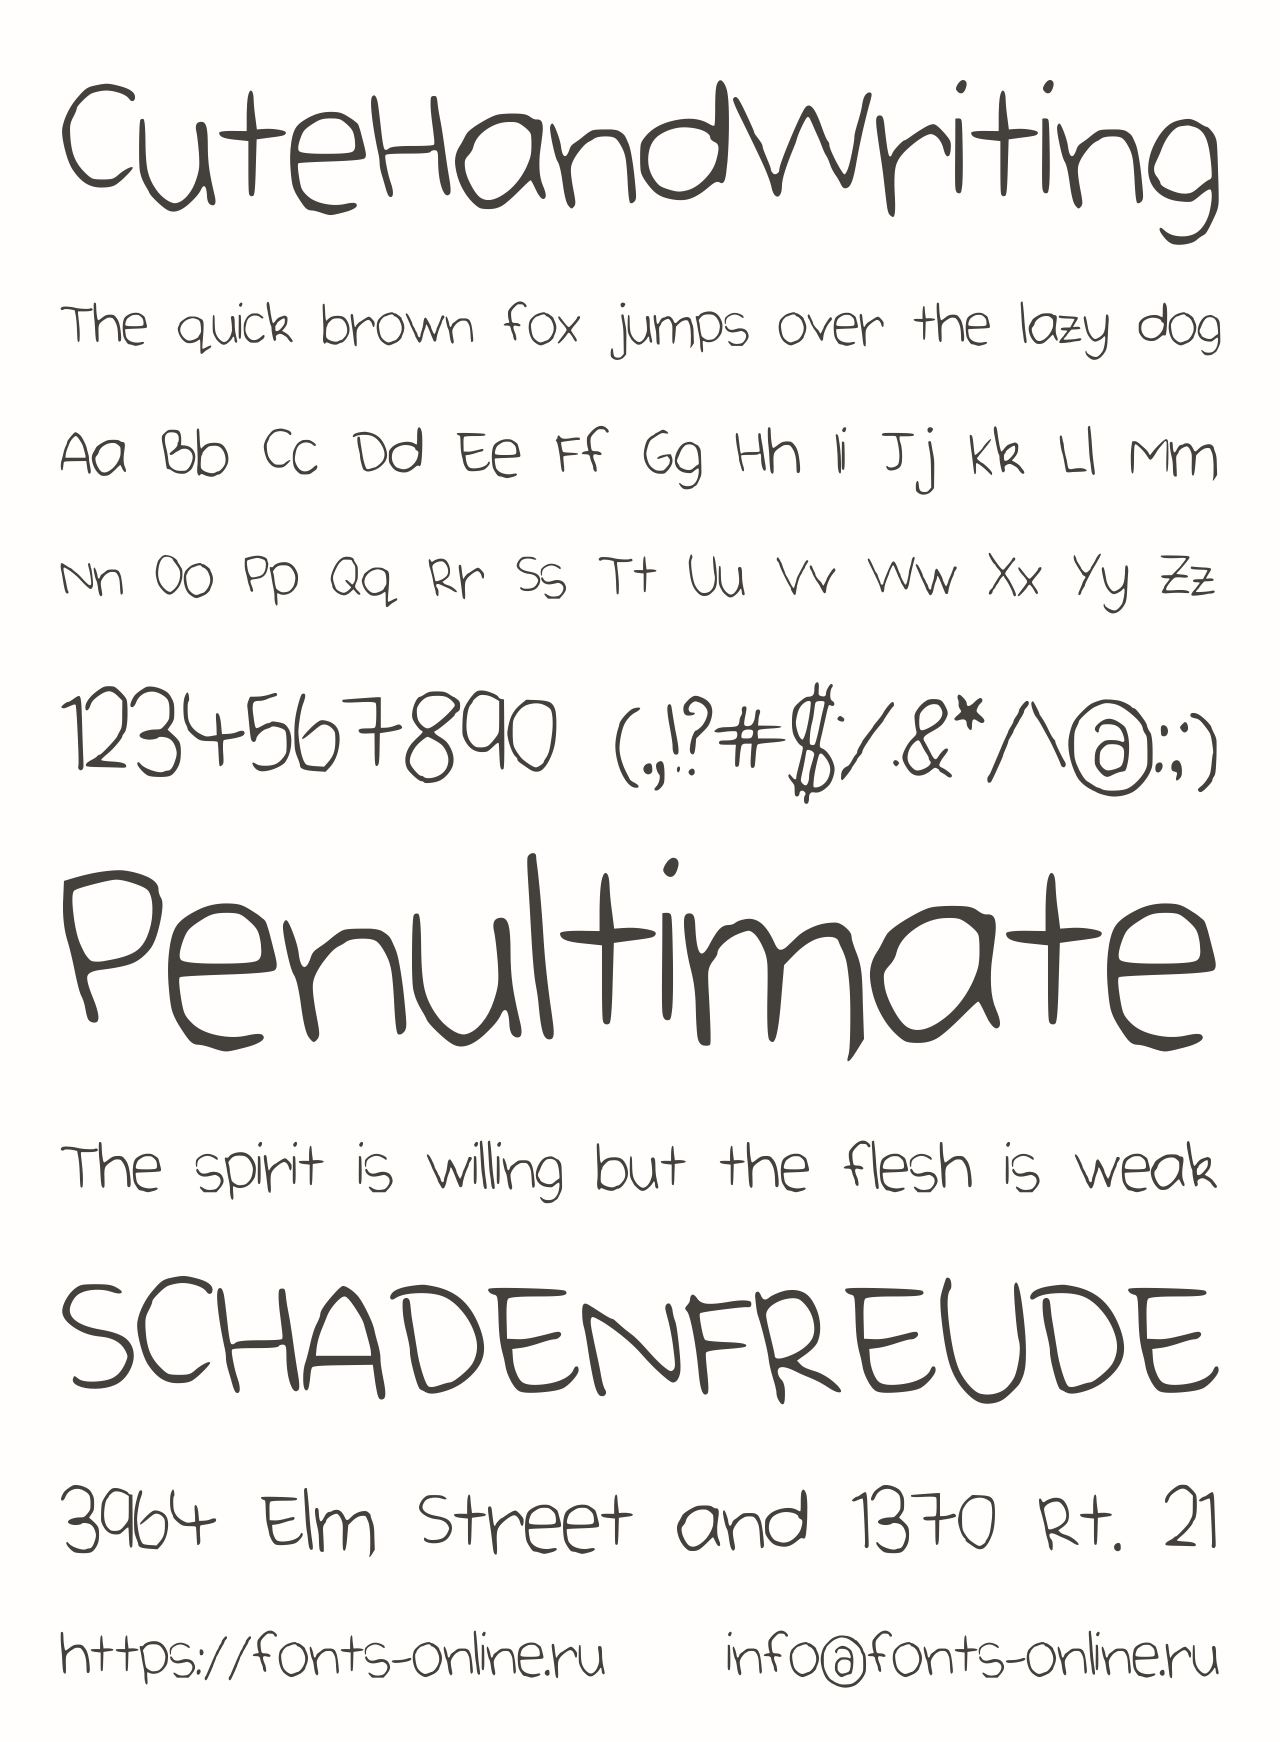 CuteHandWriting
The quick brown fox jumps over the lazy dog
Aa Bb Cc Dd Ee Ff Gg Hh Ii Jj Kk Ll Mm
Nn Oo Pp Qq Rr Ss Tt Uu Vv Ww Xx Yy Zz
1234567890 (.,!?#$%&*/\@:;)
Penultimate
The spirit is willing but the flesh is weak
SCHADENFREUDE
3964 Elm Street and 1370 Rt. 21
https://fonts-online.ru info@fonts-online.ru